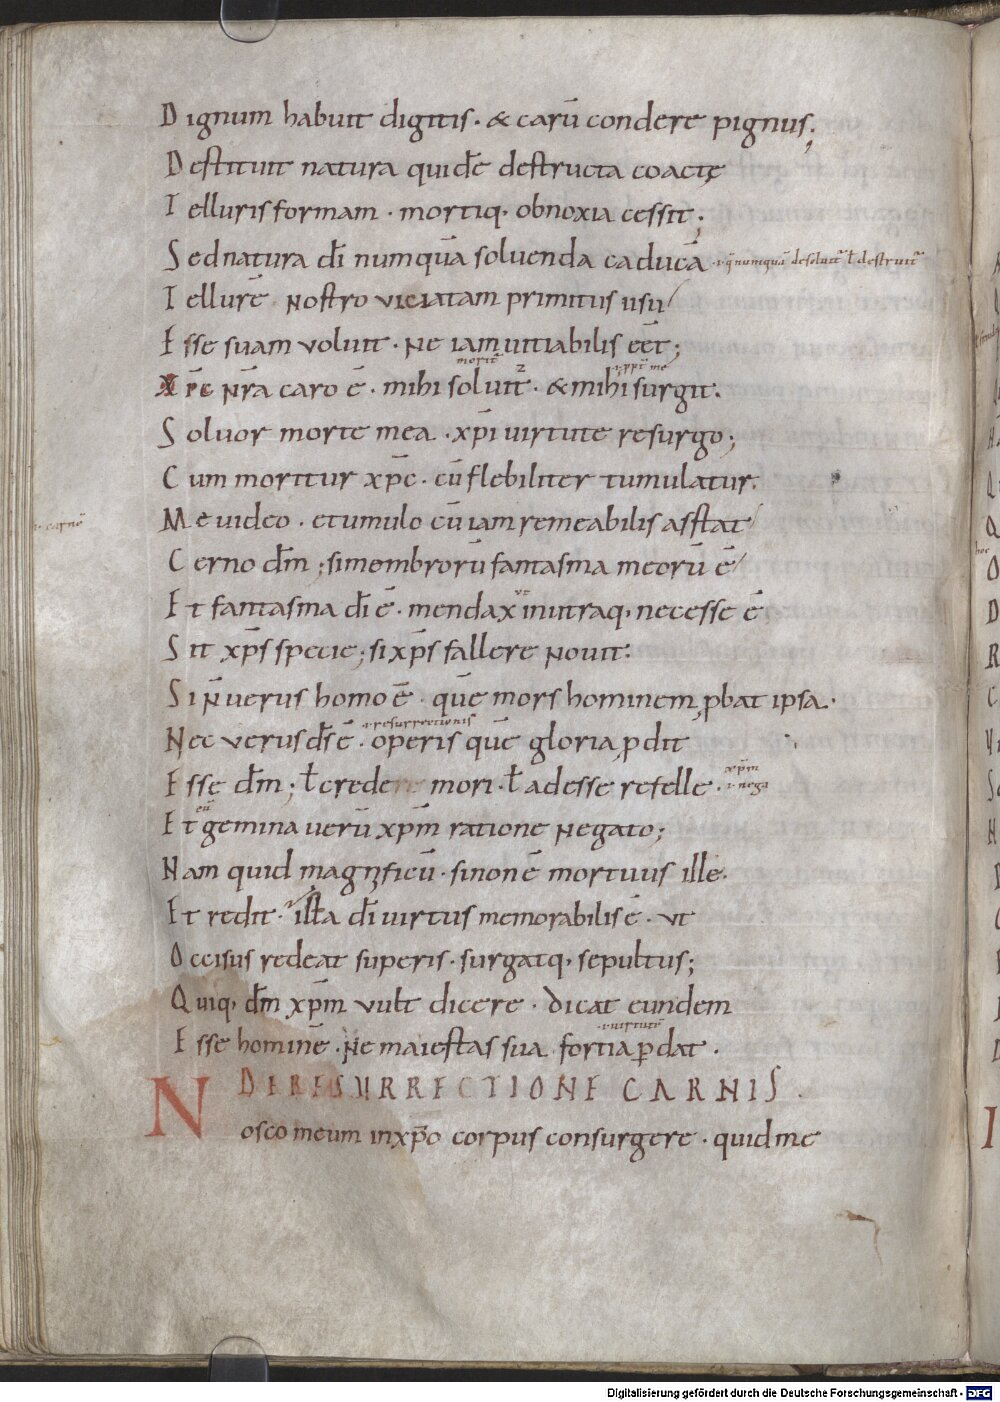 Dignum habuit digitis · & carū condere pignus;
Destituit natura quidē destructa coactę
Telluris formam · mortiq; obnoxia cessit;
Sed natura dī numquā soluenda caducā ·i· q̄ numquā desoluit̄ ł destruit̄
Tellurē Nostro viciatam primitus usu
Esse suam voluit · Ne iam uitiabilis eēt;
morit̄
Xp̄c Nr̄a caro ē · mihi soluit̄ · & mihi surgit·
Soluor morte mea · xp̄i uirtute resurgo;
Cum moritur xp̄c · cū flebiliter tumulatur·
Me uideo · e tumulo cū iam remeabilis asstat
·i· carnē
Cerno dm̄; si membrorū fantasma meorū ē
Et fantasma dī ē · mendax in utraq; necesse ē
Sit xp̄s specie; si xp̄s fallere Nouit:
Si N̄ uerus homo ē · quē mors hominem ꝓbat ipsa·
·i· resurrectionis
Nec verus ds̄ ē · operis quē gloria ꝓdit
Esse dm̄; ł crede mori · ł adesse refelle · xp̄m
·i· nega
eū
Et gemina uerū xp̄m ratione Negato;
Nam quid magnificū · si non ē mortuus ille·
Et redit · illa dī uirtus memorabilis ē · ut
Occisus redeat superis · surgatq; sepultus;
Quiq; dm̄ xp̄m vult dicere · dicat eundem
·i· uirtutē
Esse hominē · Ne maiestas sua fortia ꝑdat ·
DE RESURRECTIONE CARNIS ·
Nosco meum in xp̄o corpus consurgere · quid me
Digitalisierung gefördert durch die Deutsche Forschungsgemeinschaft - DFG